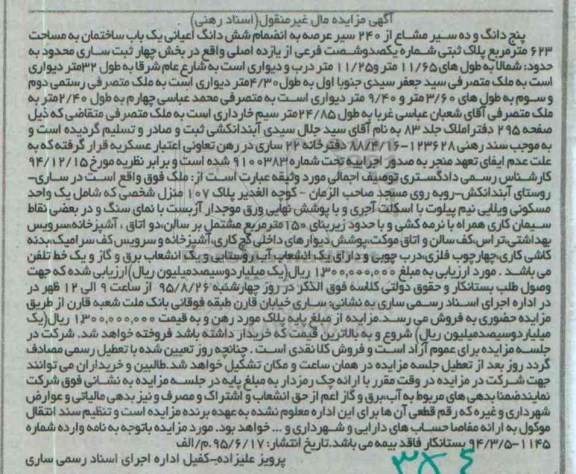 آگهی مزایده مال غیرمنقول(اسناد رهنی)
پنج دانگ و ده سیر مشاع از ۲۴۰ سیر عرصه به انضمام شش دانگ اعیانی یک باب ساختمان به مساحت
۶۲۳ مترمربع پلاک ثبتی شماره یکصدوشصت فرعی از یازده اصلی واقع در بخش چهار ثبت ساری محدود به
حدود: شمالا به طول های ۱۱/۶۵ متر و۱۱/۲۵ متر درب و دیواری است به شارع عام شرقا به طول ۳۲متر دیواری
است به ملک متصرفی سید جعفر سیدی جنوبا اول به طول۴/۳۰متر دیواری است به ملک متصرفی رستمی دوم
و سوم به طول های ۳/۶۰ متر و ۹/۴۰ متر دیواری است به متصرفی محمد عباسی چهارم به طول ۲/۴۰متر به
ملک متصرفی آقای شعبان عباسی غربا به طول ۲۴/۸۵متر سیم خارداری است به ملک متصرفی متقاضی که ذیل
صفحه ۲۹۵ دفتراملاک جلد ۸۳ به نام آقای سید جلال سیدی آبندانکشی ثبت و صادر و تسلیم گردیده است و
به موجب سند رهنی ۱۲۳۶۲۸-۸۸/۴/۱۶دفترخانه ۲۲ ساری در رهن تعاونی اعتبار عسکریه قرار گرفته که به
علت عدم ایفای تعهد منجر به صدور اجراییه تحت شماره ۹۱۰۰۳۸۳ شده است و برابر نظریه مورخ ۹۴/۱۲/۱۵
کارشناس رسمی دادگستری توصیف اجمالی مورد وثیقه عبارت است از: ملک فوق واقع است در ساری-
روستای آبندانکش-روبه روی مسجد صاحب الزمان - کوچه الغدیر پلاک ۱۰۷ منزل شخصی که شامل یک واحد
مسکونی ویلایی نیم پیلوت با اسکلت آجری و با پوشش نهایی ورق موجدار آزبست با نمای سنگ و در بعضی نقاط
سیمان کاری همراه با نرمه کشی و با حدود زیربنای ۱۵۰مترمربع مشتمل بر سالن،دو اتاق ، آشپزخانه،سرویس
بهداشتی،تراس،کف سالن و اتاق موکت،پوشش دیوارهای داخلی گچ کاری،آشپزخانه و سرویس کف سرامیک،بدنه
کاشی کاری،چهارچوب فلزی،درب چوبی و دارای یک انشعاب آب روستایی و یک انشعاب برق و گاز و یک خط تلفن
می باشد . مورد ارزیابی به مبلغ ۱۳۰۰,۰۰۰,۰۰۰ ریال(یک میلیاردوسیصدمیلیون ریال)ارزیابی شده که جهت
وصول طلب بستانکار و حقوق دولتی کلاسه فوق الذکر در روز چهارشنبه ۹۵/۸/۲۶ از ساعت ۹ الی ۱۲ ظهر در
در اداره اجرای اسناد رسمی ساری به نشانی: ساری خیابان قارن طبقه فوقانی بانک ملت شعبه قارن از طریق
مزایده حضوری به فروش می رسد.مزایده از مبلغ پایه پلاک مورد رهن و به قیمت ۱۳۰۰,۰۰۰,۰۰۰ ریال(یک
میلیاردوسیصدمیلیون ریال) شروع و به بالاترین قیمت که خریدار داشته باشد فروخته خواهد شد. شرکت در
جلسه مزایده برای عموم آزاد است و فروش کلا نقدی است . چنانچه روز تعیین شده با تعطیل رسمی مصادف
گردد روز بعد از تعطیل جلسه مزایده در همان ساعت و مکان تشکیل خواهد شد.طالبین و خریداران می توانند
جهت شرکت در مزایده در وقت مقرر با ارائه چک رمزدار به مبلغ پایه در جلسه مزایده به نشانی فوق شرکت
نمایند ضمنا بدهی های مربوط به آب،برق و گاز اعم از حق انشعاب و اشتراک و مصرف و نیز بدهی مالیاتی و عوارض
شهرداری و غیره که رقم قطعی آن ها برای این اداره معلوم نشده به عهده برنده مزایده است و تنظیم سند انتقال
موکول به ارائه مفاصا حساب های دارایی و شهرداری و ... خواهد بود. مورد مزایده باتوجه به نامه وارده شماره
۱۱۴۵-۹۴/۳/۵ بستانکار فاقد بیمه می باشد.تاریخ انتشار: ۹۵/۶/۱۷.م/الف
پرویز علیزاده-کفیل اداره اجرای اسناد رسمی ساری